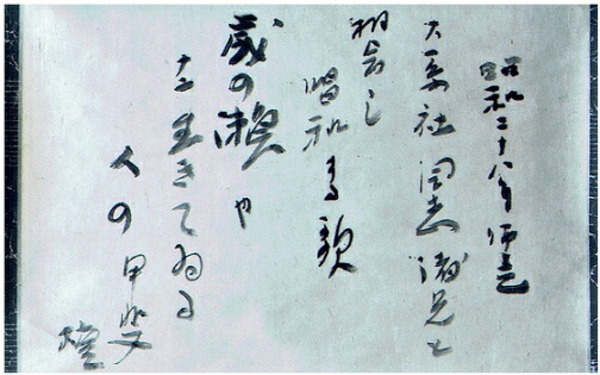 昭和二十八年師走
社同志諸兄と
相会し
唱和する歌
歳の瀬や
生きてゐる
人の甲斐